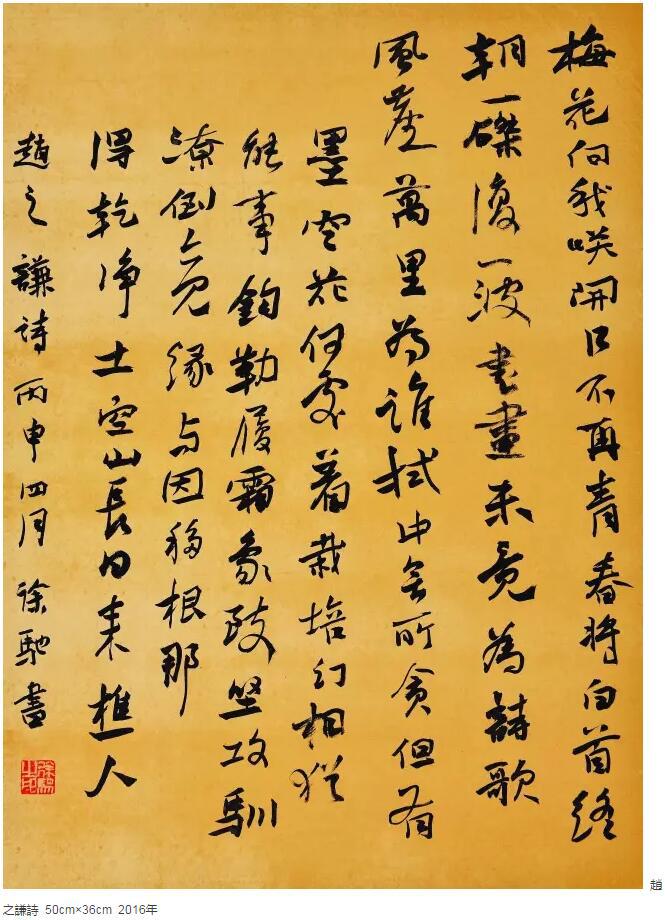 梅花向我咲開口不再青春将白首終
朝一磔復一波書畫未竟為詩歌
風塵萬里為誰拭中無所貪但有
墨空花何處着栽培幻相從
能事鈎勒履霜象堅攻馴
潦倒亦見緣与因移根那
得乾净土空山長日來樵人
趙之謙詩丙申四月徐馳書
趙
之謙詩 50cm×36cm 2016年